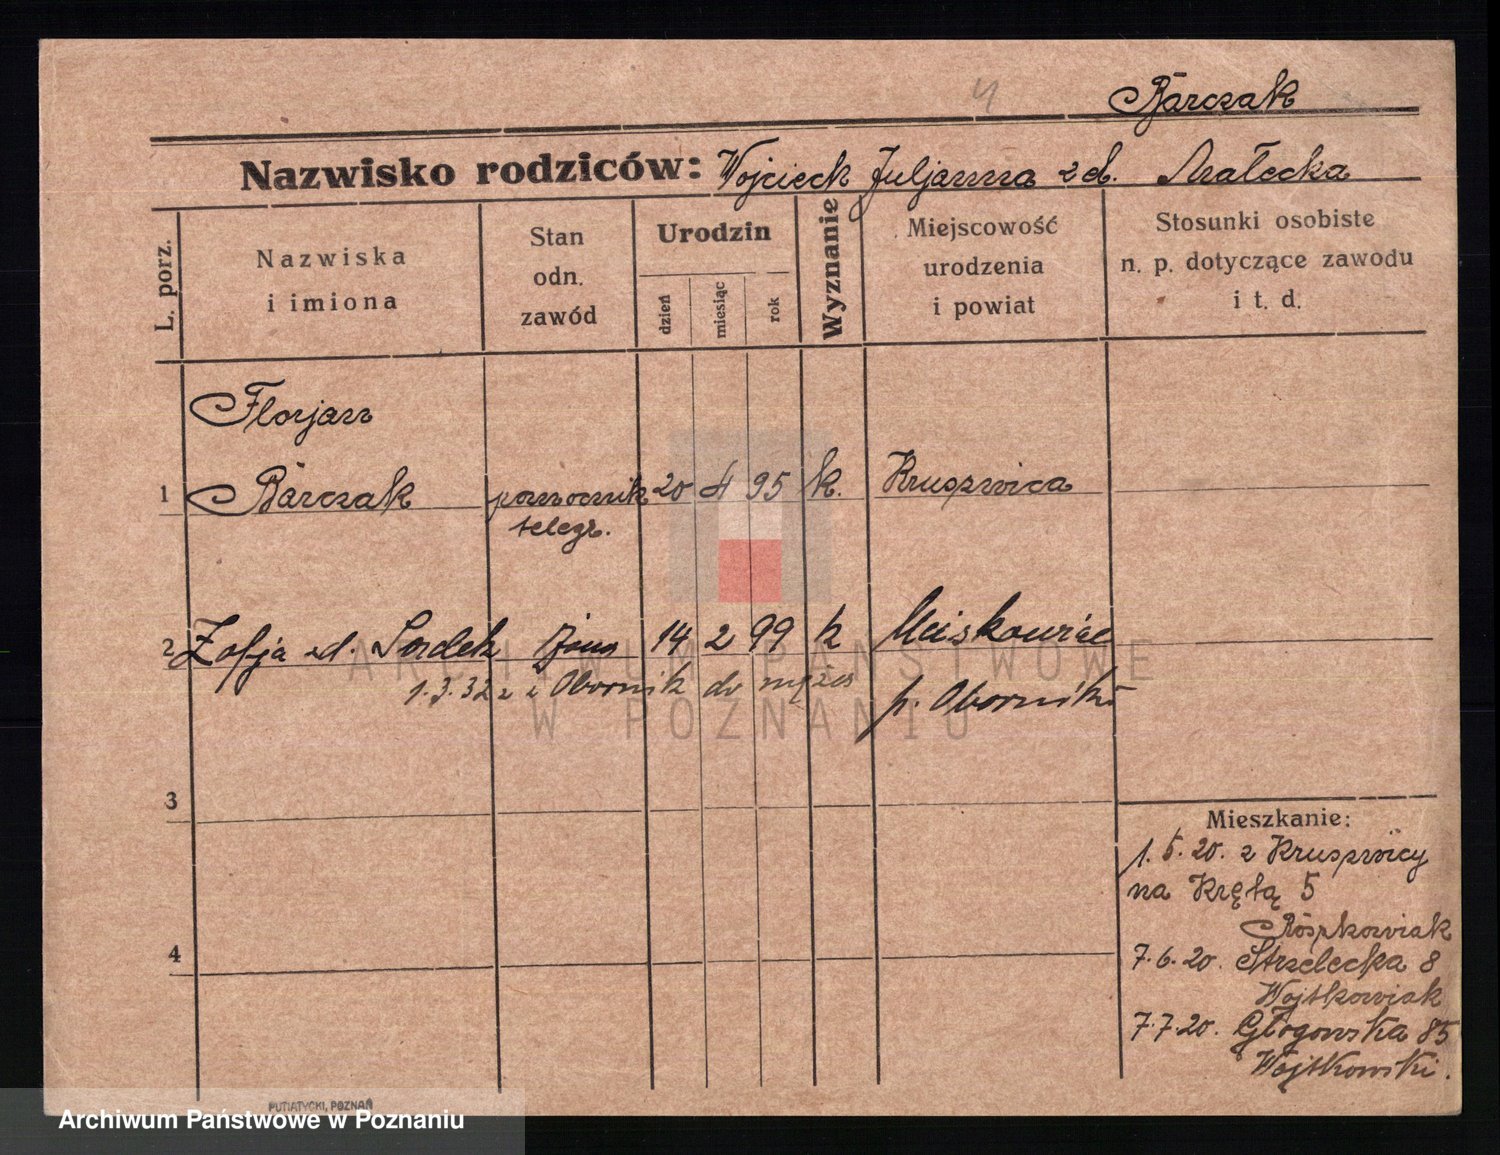 4
Barczak
Nazwisko rodziców: Wojciech Juljanna zd. Małecka
L. porz.
Nazwiska
i imiona
Stan
odn.
zawód
Urodzin
dzień
miesiąc
rok
Wyznanie
Miejscowość
urodzenia
i powiat
Stosunki osobiste
n. p. dotyczące zawodu
i t. d.
Florjan
1 Barczak pomocnik 20 4 95 k. Kruszwica
telegr.
2 Zofja zd. Sordek żona 14 2 99 k
1.3.32 z Obornik do męża p. Oborniki
3
4
Mieszkanie:
1.5.20. z Kruszwicy
na Krętą 5
7.6.20. Strzelecka 8
Wojtkowiak
7.7.20. Głogowska 85
Wojtkowski.
ARCHIWUM PAŃSTWOWE
W POZNANIU
PUTIATYCKI, POZNAŃ
Archiwum Państwowe w Poznaniu